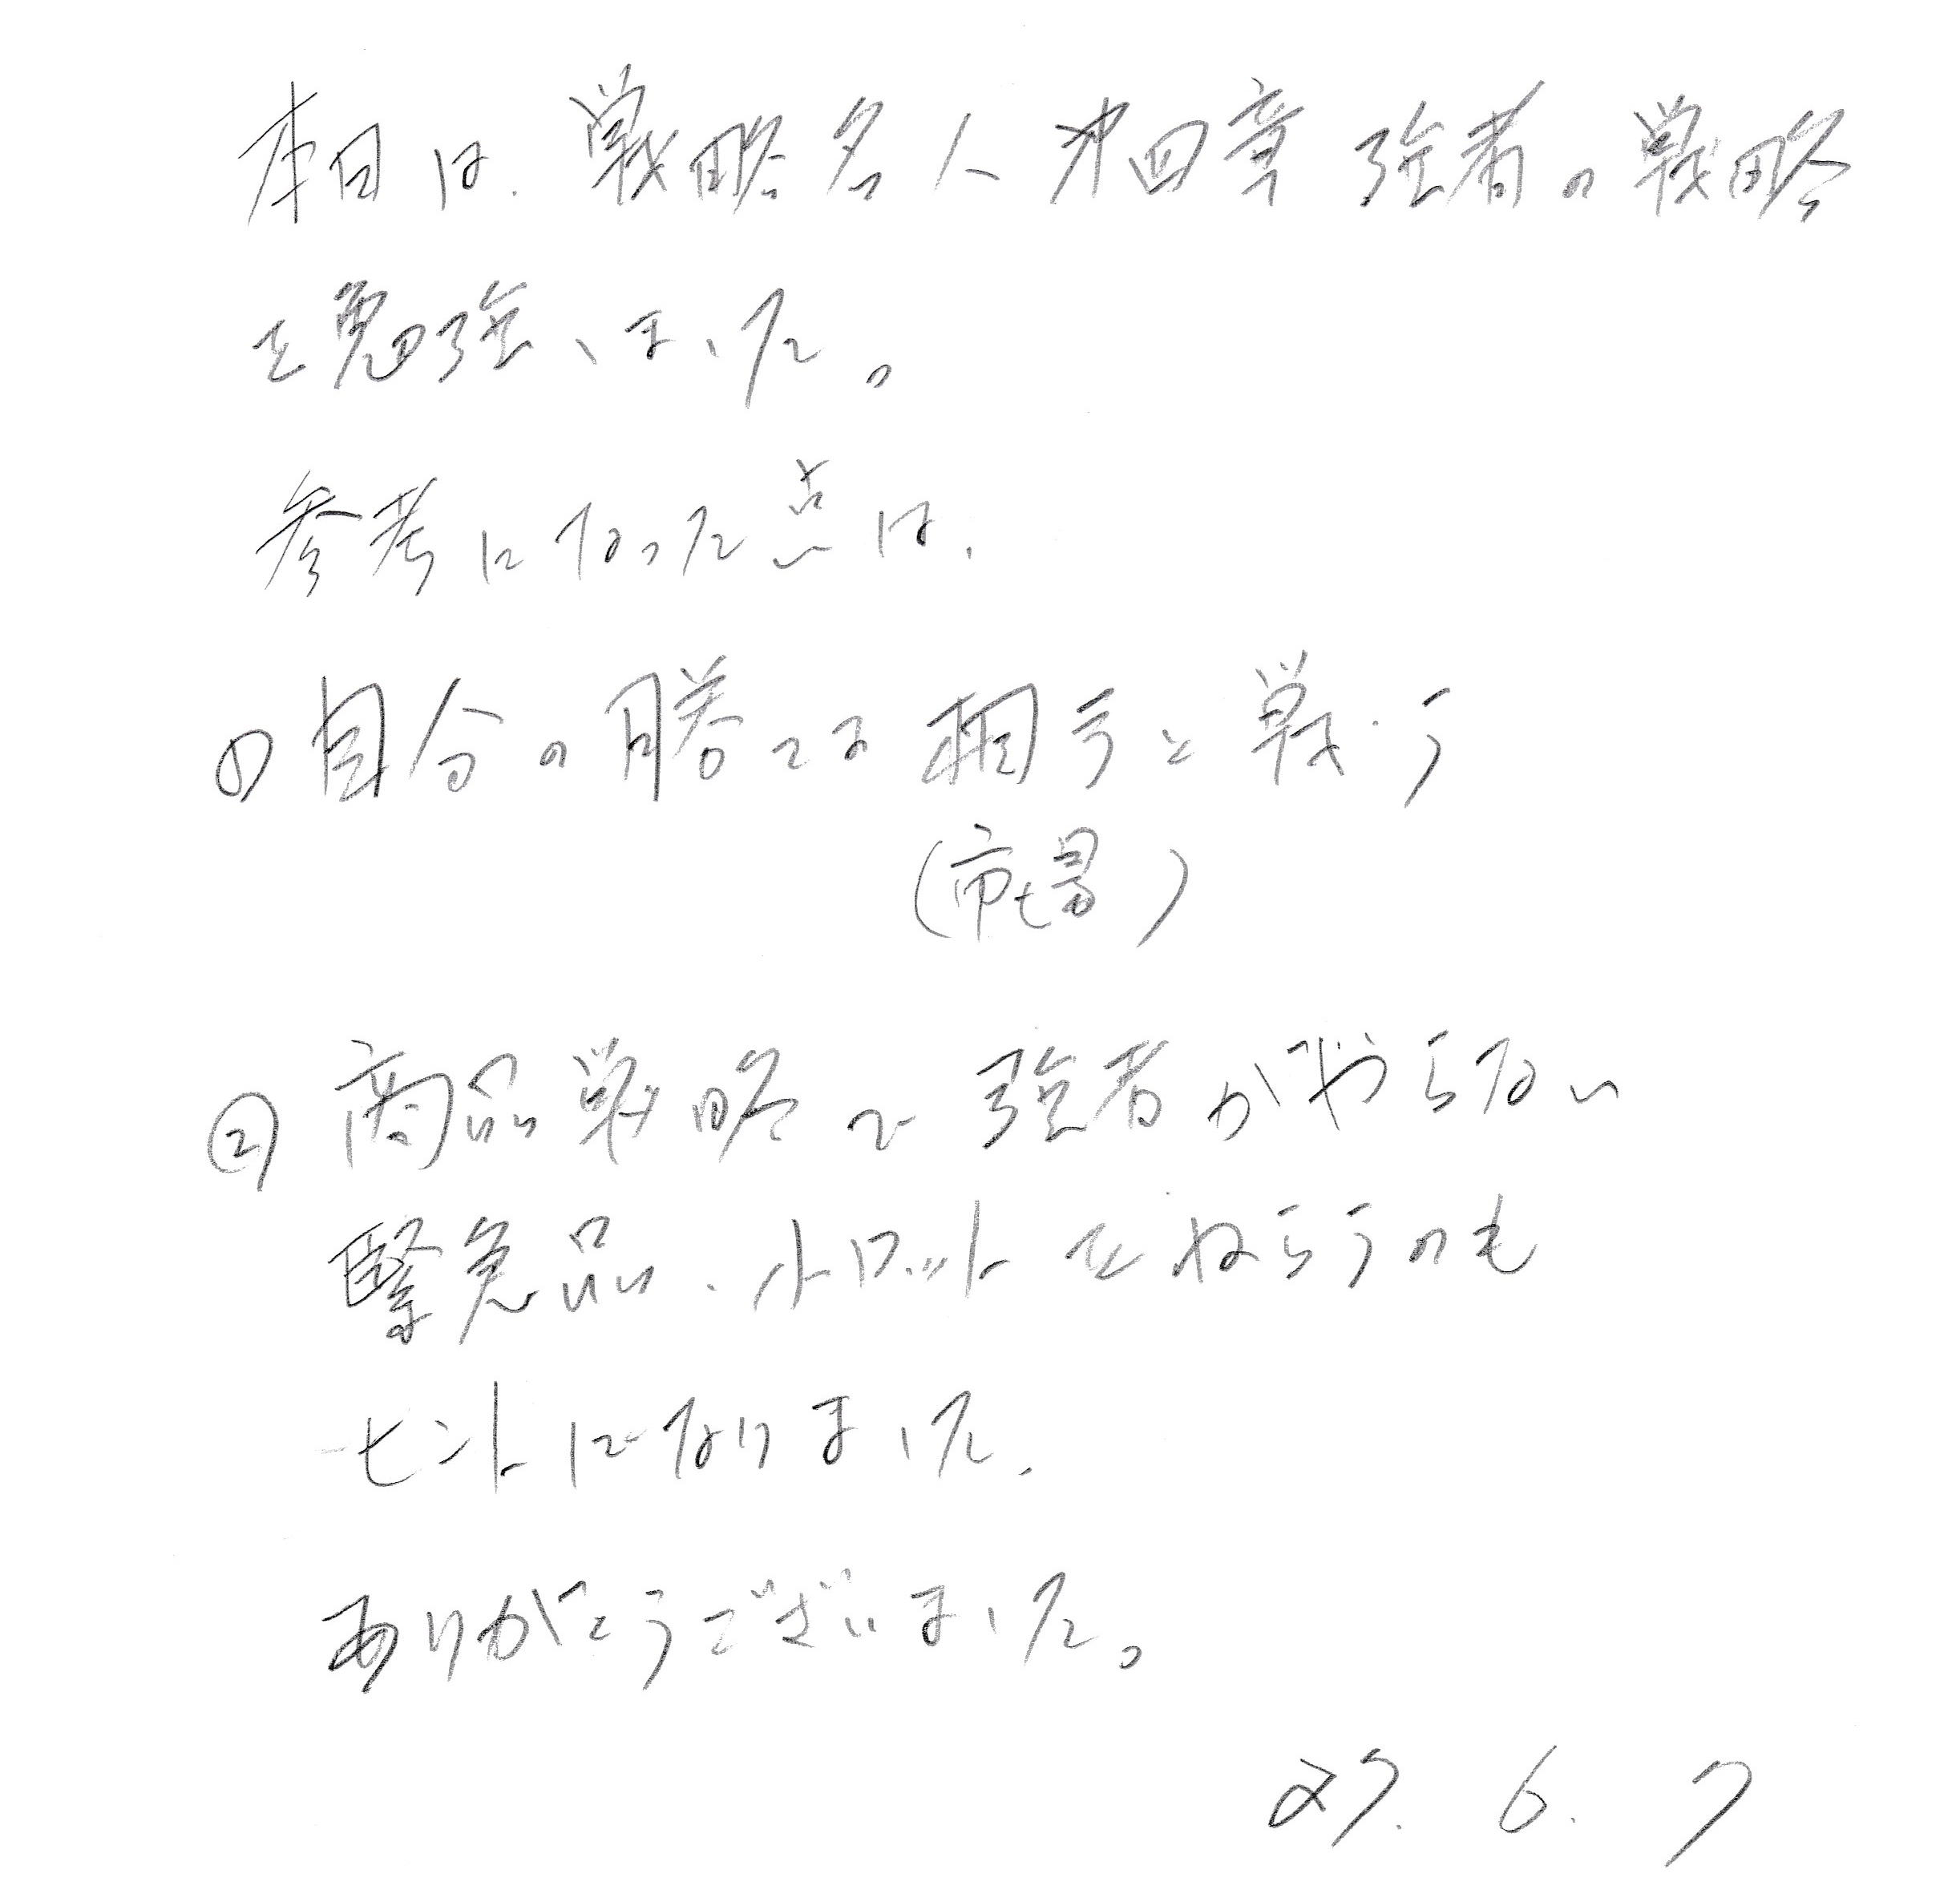 本日は、戦略名人 第四章 強者の戦略
を勉強しました。
参考になった点は、
① 自分の勝てる相手と戦う
(市場)
② 商品戦略で強者がやらない
緊急品、小ロットをねらうのも
ヒントになりました。
ありがとうございました。
27. 6. 7